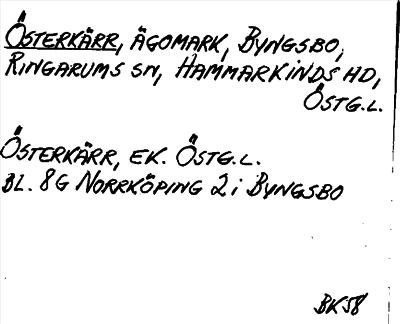 ÖSTERKÄRR, ÄGOMARK, BYNGSBO,
RINGARUMS SN, HAMMARKINDS HD,
ÖSTG.L.
ÖSTERKÄRR, EK. ÖSTG.L.
BL. 8G NORRKÖPING 2i BYNGSBO
BK58